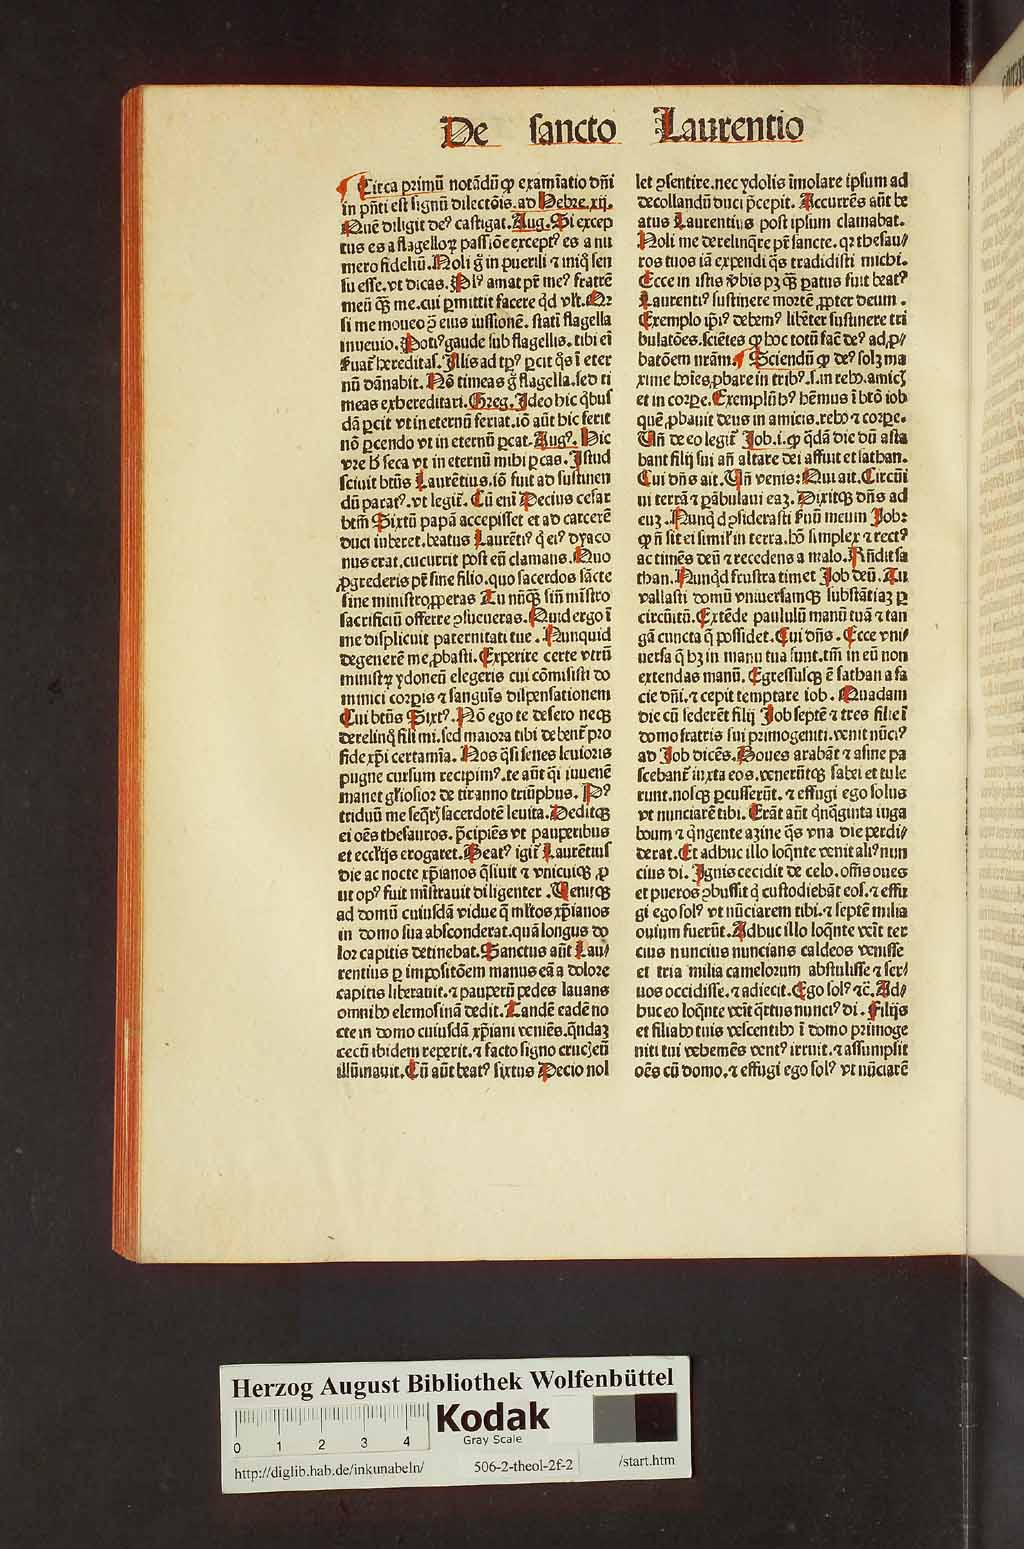 De sancto Laurentio
¶ Circa primū notādū ꝙ examīatio dn̄i
in pn̄ti est signū dilectōis. ad Hebre. xij.
Quē diligit deꝰ castigat. Aug. Si excep
tus es a flagelloꝝ passiōe exceptꝰ es a nu
mero fideliū. Noli g̊ in puerili ⁊ iniq̊ sen
su esse. vt dicas. Plꝰ amat pr̄ meꝰ fratrē
meū qꝫ me. cui ꝑmittit facere qd̓ vlt̓. Qr̄
si me moueo ꝯ̄ eius iussionē. stati flagella
inuenio. Potiꝰ gaude sub flagellis. tibi em̄
ẜuat̄ hereditas. Illis ad tp̄ꝰ ꝑcit q̊s ī eter
nū dānabit. Nō timeas g̊ flagella. sed ti
meas exhereditari. Greg. Ideo hic qbus̓
dā ꝑcit vt in eternū feriat. iō aūt hic ferit
nō ꝑcendo vt in eternū ꝑcat. Augꝰ. Hic
vre h̓ seca vt in eternū mihi ꝑcas. Istud
sciuit btūs Laurētius. iō fuit ad sustinen
dū paratꝰ. vt legit̄. Cū eni Decius cesar
btm̄ Sixtū papā accepisset et ad carcerē
duci iuberet. beatus Laurētiꝰ q̓ eiꝰ dyaco
nus erat. cucurrit post eū clamans. Quo
ꝓgrederis pr̄ sine filio. quo sacerdos sācte
sine ministro ꝓperas Tu nūqꝫ sin̄ mīstro
sacrificiū offerre ꝯsueueras. Quid ergo ī
me displicuit paternitati tue. Nunquid
degenerē me ꝓbasti. Experire certe vtrū
ministꝝ ydoneū elegeris cui cōmisisti do
minici corꝑis ⁊ sanguīs dispensationem
Cui btūs Sixtꝰ. Nō ego te desero neqꝫ
derelinq̊ fili mi. sed maiora tibi debent̄ pro
fide xp̄i certamīa. Nos q̓si senes leuioris
pugne cursum recipimꝰ. te aūt q̓i iuuenē
manet gl̓iosior de tiranno triūphus. Pꝰ
triduū me seq̄rꝭ sacerdotē leuita. Deditqꝫ
ei oēs thesauros. p̄cipiēs vt pauperibus
et eccl̓ijs erogaret. Beatꝰ igit̄ Laurētius
die ac nocte xp̄ianos q̄siuit ⁊ vnicuiqꝫ ꝓ
ut opꝰ fuit mīstrauit diligenter. Uenitqꝫ
ad domū cuiusdā vidue q̄ ml̓tos xp̄ianos
in domo sua absconderat. quā longus do
lor capitis detinebat. Sanctus aūt Lau/
rentius ꝑ impositōem manus eā a dolore
capitis liberauit. ⁊ pauperū pedes lauans
omnibꝰ elemosinā dedit. Tandē eadē no
cte in domo cuiusdā xp̄iani veniēs. qndaꝫ
cecū ibidem reperit. ⁊ facto signo crucꝭ eū
illūinauit. Cū aūt beatꝰ sixtus Decio nol
let ꝯsentire. nec ydolis īmolare ipsum ad
decollandū duci p̄cepit. Accurrēs aūt be
atus Laurentius post ipsum clamabat.
Noli me derelinq̄re pr̄ sancte. qꝛ thesau/
ros tuos iā expendi q̊s tradidisti michi.
Ecce in istis v̓bis pꝫ qꝫ ꝑatus fuit beatꝰ
Laurentiꝰ sustinere mortē ꝓpter deum.
Exemplo ip̄iꝰ debemꝰ libēter sustinere tri
bulatōes. sciētes ꝙ hoc totū facē deꝰ ad ꝓ/
batōem nr̄am. ¶ Sciendū ꝙ deꝰ solꝫ ma
xime hoīes ꝓbare in tribꝰ. s. in rebꝰ. amicꝭ
et in corꝑe. Exemplū hꝰ hēmus ī btō iob
quē ꝓbauit deus in amicis. rebꝰ ⁊ corꝑe.
Un̄ de eo legit̄ Job. i. ꝙ q̄dā die dū asta
bant filij sui an̄ altare dei affuit et sathan.
Cui dn̄s ait. Un̄ venis: Qui ait. Circuī
ui terrā ⁊ ꝑābulaui eaꝫ. Dixitqꝫ dn̄s ad
euꝫ. Nunqd̓ ꝯsiderasti ẜuū meum Job:
ꝙ n̄ sit ei simil̓ in terra. hō simplex ⁊ rectꝰ
ac timēs deū ⁊ recedens a malo. Rn̄dit sa
than. Nunqd̓ frustra timet Job deū. Tu
vallasti domū vniuersamqꝫ substātiaꝫ ꝑ
circūitū. Extēde paululū manū tuā ⁊ tan
gā cuncta q̄ possidet. Cui dn̄s. Ecce vni/
uersa q̄ hꝫ in manu tua sunt. tm̄ in eū non
extendas manū. Egressusqꝫ ē sathan a fa
cie dn̄i. ⁊ cepit temptare iob. Quadam
die cū sederēt filij Job septē ⁊ tres filie ī
domo fratris sui primogeniti. venit nūciꝰ
ad Job dicēs. Boues arabāt ⁊ asine pa
scebant̄ iuxta eos. venerūtqꝫ sabei et tule
runt. nosqꝫ ꝑcusserūt. ⁊ effugi ego solus
vt nunciarē tibi. Erāt aūt qnq̓ginta iuga
boum ⁊ q̓ngente azine q̄s vna die perdi/
derat. Et adhuc illo loq̄nte venit aliꝰ nun
cius di. Ignis cecidit de celo. om̄s oues
et pueros ꝯbussit q̓ custodiebāt eos. ⁊ effu
gi ego solꝰ vt nūciarem tibi. ⁊ septē milia
ouium fuerūt. Adhuc illo loq̄nte veīt ter
cius nuncius nuncians caldeos venisse
et tria milia camelorum abstulisse ⁊ ser/
uos occidisse. ⁊ adiecit. Ego solꝰ ⁊c̄. Ad/
huc eo loq̄nte veīt q̓rtus nunciꝰ di. Filijs
et filiabꝰ tuis vescentibꝰ ī domo primoge
niti tui vehemēs ventꝰ irruit. ⁊ assumpsit
oēs cū domo. ⁊ effugi ego solꝰ vt nūciarē
Herzog August Bibliothek Wolfenbüttel
0 1 2 3 4
Kodak
Gray Scale
http://diglib.hab.de/inkunabeln/ 506-2-theol-2f-2 /start.htm